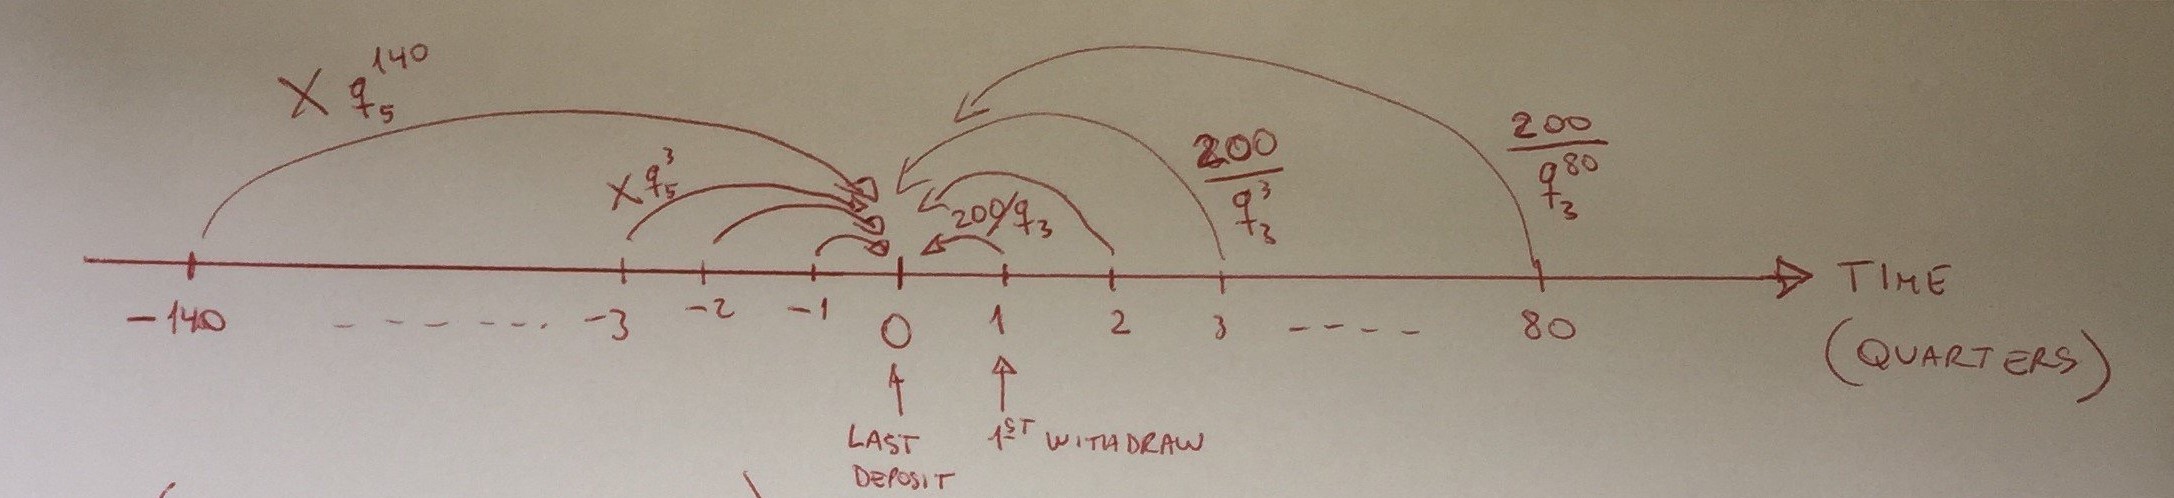 X q₅¹⁴⁰
X q₅³
200/q₃
200
q₃³
200
q₃⁸⁰
-140 - - - - - - . -3 -2 -1 0 1 2 3 - - - - 80
TIME
(QUARTERS)
LAST
DEPOSIT
1ST WITHDRAW